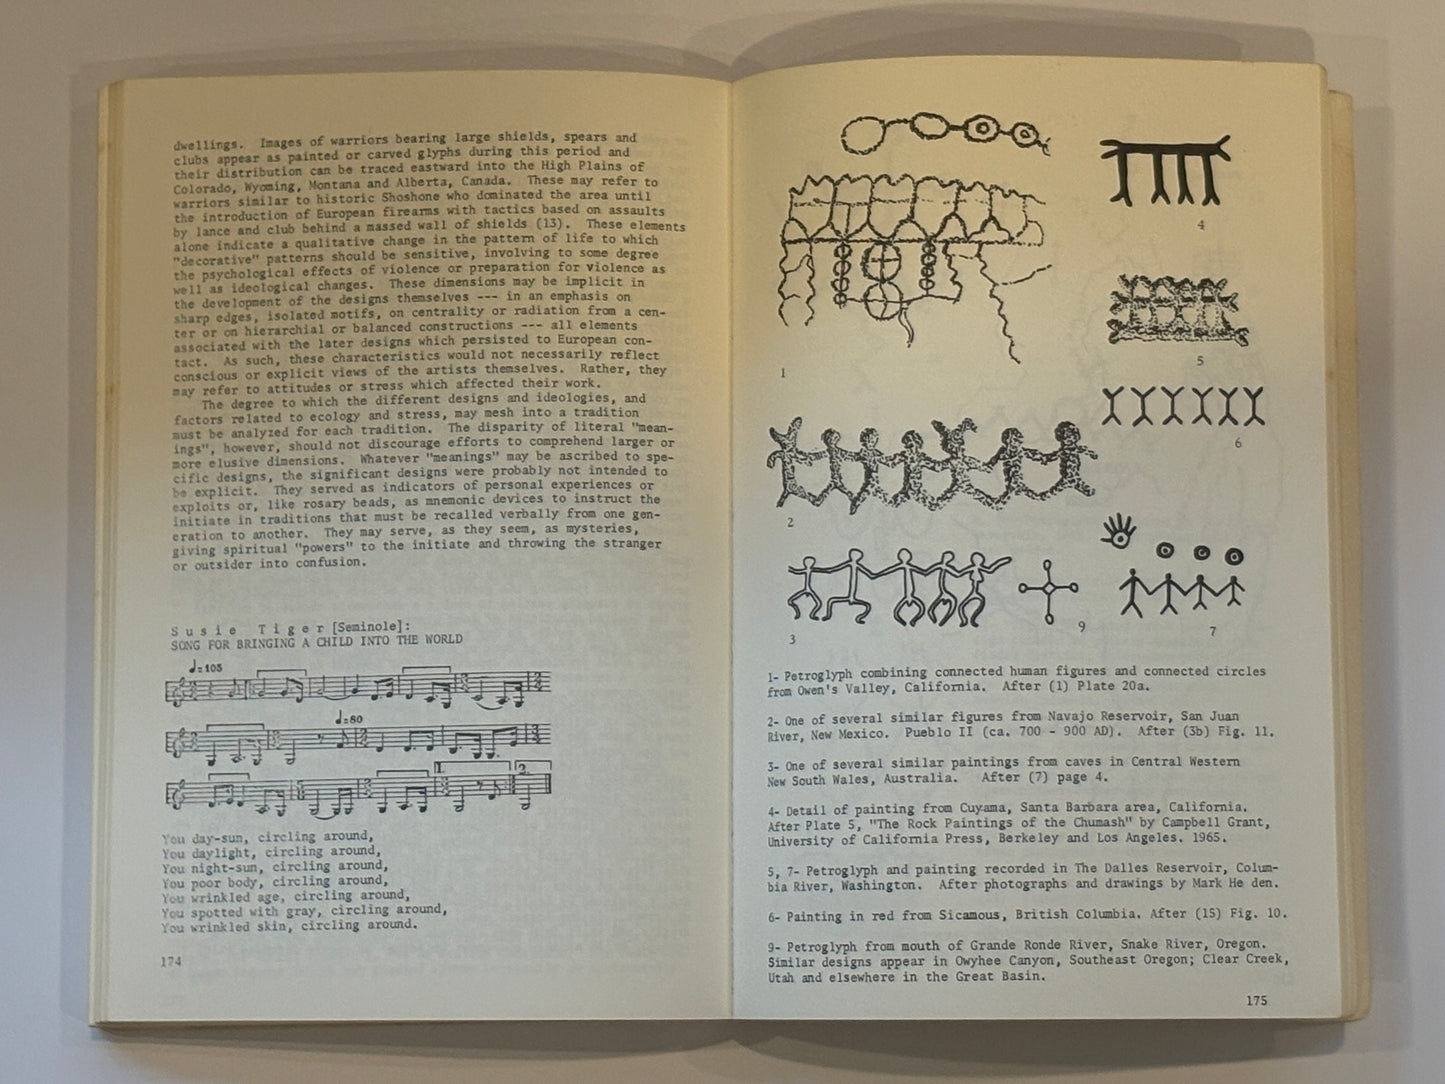 dwellings. Images of warriors bearing large shields, spears and
clubs appear as painted or carved glyphs during this period and
their distribution can be traced eastward into the High Plains of
Colorado, Wyoming, Montana and Alberta, Canada. These may refer to
warriors similar to historic Shoshone who dominated the area until
the introduction of European firearms with tactics based on assaults
by lance and club behind a massed wall of shields (13). These elements
alone indicate a qualitative change in the pattern of life to which
"decorative" patterns should be sensitive, involving to some degree
the psychological effects of violence or preparation for violence as
well as ideological changes. These dimensions may be implicit in
the development of the designs themselves --- in an emphasis on
sharp edges, isolated motifs, on centrality or radiation from a cen-
ter or on hierarchial or balanced constructions --- all elements
associated with the later designs which persisted to European con-
tact. As such, these characteristics would not necessarily reflect
conscious or explicit views of the artists themselves. Rather, they
may refer to attitudes or stress which affected their work.
The degree to which the different designs and ideologies, and
factors related to ecology and stress, may mesh into a tradition
must be analyzed for each tradition. The disparity of literal "mean-
ings", however, should not discourage efforts to comprehend larger or
more elusive dimensions. Whatever "meanings" may be ascribed to spe-
cific designs, the significant designs were probably not intended to
be explicit. They served as indicators of personal experiences or
exploits or, like rosary beads, as mnemonic devices to instruct the
initiate in traditions that must be recalled verbally from one gen-
eration to another. They may serve, as they seem, as mysteries,
giving spiritual "powers" to the initiate and throwing the stranger
or outsider into confusion.
Susie Tiger [Seminole]:
SONG FOR BRINGING A CHILD INTO THE WORLD
♩=105
♩=80
1.
2.
You day-sun, circling around,
You daylight, circling around,
You night-sun, circling around,
You poor body, circling around,
You wrinkled age, circling around,
You spotted with gray, circling around,
You wrinkled skin, circling around.
174
1
4
5
6
2
3
9
7
1- Petroglyph combining connected human figures and connected circles
from Owen's Valley, California. After (1) Plate 20a.
2- One of several similar figures from Navajo Reservoir, San Juan
River, New Mexico. Pueblo II (ca. 700 - 900 AD). After (3b) Fig. 11.
3- One of several similar paintings from caves in Central Western
New South Wales, Australia. After (7) page 4.
4- Detail of painting from Cuyama, Santa Barbara area, California.
After Plate 5, "The Rock Paintings of the Chumash" by Campbell Grant,
University of California Press, Berkeley and Los Angeles. 1965.
5, 7- Petroglyph and painting recorded in The Dalles Reservoir, Colum-
bia River, Washington. After photographs and drawings by Mark He den.
6- Painting in red from Sicamous, British Columbia. After (15) Fig. 10.
9- Petroglyph from mouth of Grande Ronde River, Snake River, Oregon.
Similar designs appear in Owyhee Canyon, Southeast Oregon; Clear Creek,
Utah and elsewhere in the Great Basin.
175